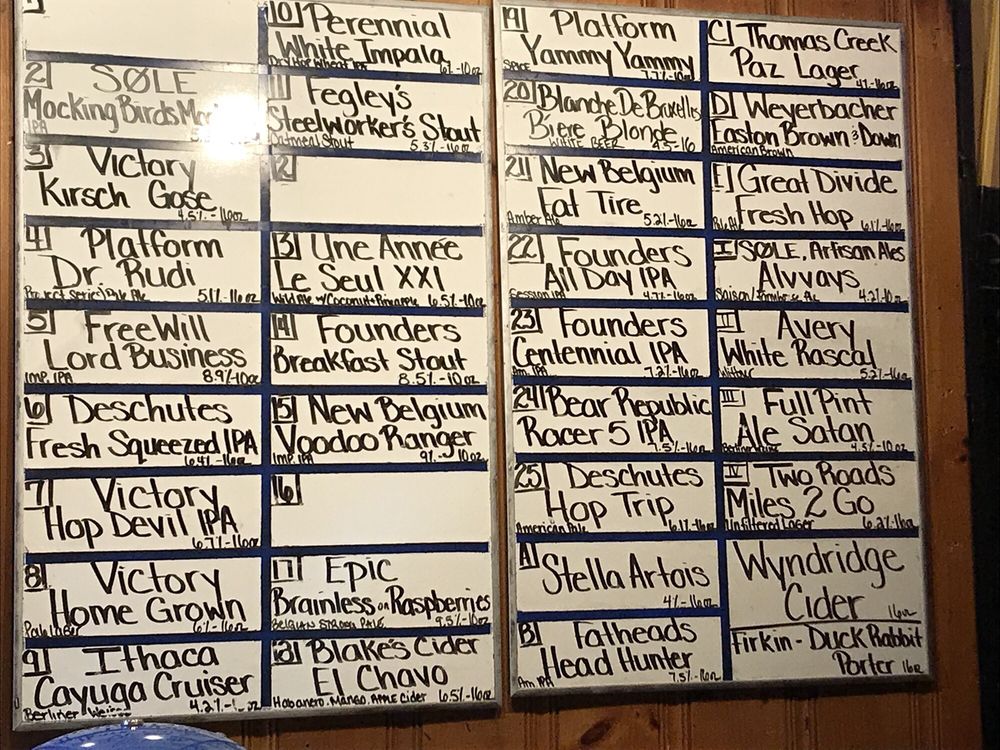 2 SØLE
Mocking Birds
IPA
3 Victory
Kirsch Gose
4.5%-16oz
4 Platform
Dr. Rudi
Project Series/Pale Ale 5.1%-16oz
5 FreeWill
Lord Business
Imp. IPA 8.9%-10oz
6 Deschutes
Fresh Squeezed IPA
6.4%-16oz
7 Victory
Hop Devil IPA
6.7%-16oz
8 Victory
Home Grown
Pale Lager 6%-16oz
9 Ithaca
Cayuga Cruiser
Berliner Weisse 4.2%
10 Perennial
White Impala
Dry Hop Wheat IPA 6%-10oz
11 Fegley's
Steelworker's Stout
Oatmeal Stout 5.3%-16oz
12
13 Une Année
Le Seul XXI
Wild Ale w/Coconut+Pineapple 6.5%-10oz
14 Founders
Breakfast Stout
8.5%-10oz
15 New Belgium
Voodoo Ranger
Imp. IPA 9%-10oz
16
17 Epic
Brainless on Raspberries
BELGIAN STRONG PALE 9.5%-10oz
18 Blake's Cider
El Chavo
Habanero, Mango, APPLE Cider 6.5%-16oz
19 Platform
Yammy Yammy
SPICE 7.7%-10oz
20 Blanche De Bruxelles
Biere Blonde
WHITE BEER 4.5-16
21 New Belgium
Fat Tire
Amber Ale 5.2%-16oz
22 Founders
All Day IPA
Session IPA 4.7%-16oz
23 Founders
Centennial IPA
Am. IPA 7.2%-16oz
24 Bear Republic
Racer 5 IPA
7.5%-16oz
25 Deschutes
Hop Trip
American Pale 6.1%-16oz
A Stella Artois
4%-16oz
B Fatheads
Head Hunter
Am IPA 7.5%-16oz
C Thomas Creek
Paz Lager
4%-16oz
D Weyerbacher
Easton Brown & Down
American Brown
E Great Divide
Fresh Hop
Pale Ale 6.1%-16oz
I SØLE. Artisan Ales
Alvvays
Saison/Farmhouse Ale 4.2%-10oz
II Avery
White Rascal
Witbier 5.2%-16oz
III Full Pint
Ale Satan
4.5%-16oz
IV Two Roads
Miles 2 Go
Unfiltered Lager 6.2%-16oz
Wyndridge
Cider 16oz
Firkin - Duck Rabbit
Porter 16oz